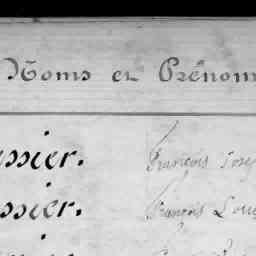 Noms et Prénom
ssier. François Jose
ssier. François Lou